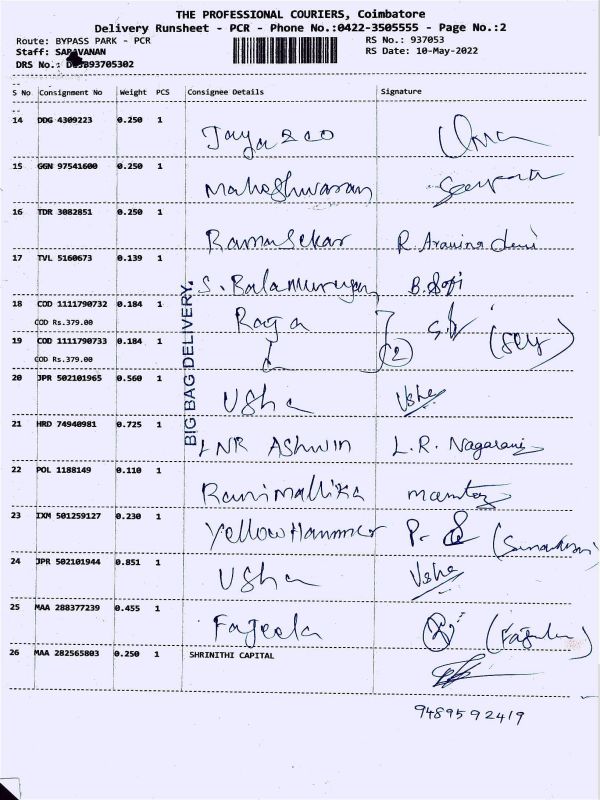 THE PROFESSIONAL COURIERS, Coimbatore
Delivery Runsheet - PCR - Phone No.:0422-3505555 - Page No.:2
Route: BYPASS PARK - PCR RS No.: 937053
Staff: SARAVANAN RS Date: 10-May-2022
DRS No.: 93705302
S No Consignment No Weight PCS Consignee Details Signature
14 DDG 4309223 0.250 1 Jaya
15 GGN 97541600 0.250 1 Maheshwaran
16 TDR 3082851 0.250 1 Ramasekar R. Aravina devi
17 TVL 5160673 0.139 1 S. Balamurugan B. Soji
18 COD 1111790732 0.184 1 Raja
COD Rs.379.00
19 COD 1111790733 0.184 1 (2)
COD Rs.379.00
20 JPR 502101965 0.560 1 Usha Usha
21 HRD 74940981 0.725 1 LNR Ashwin L.R. Nagarani
22 POL 1188149 0.110 1 Ranimallika mamtaz
23 IXM 501259127 0.230 1 YellowHammer P.
24 JPR 502101944 0.851 1 Usha Usha
25 MAA 288377239 0.455 1 Fajeela
26 MAA 282565803 0.250 1 SHRINITHI CAPITAL
BIG BAG DELIVERY.
9489592419